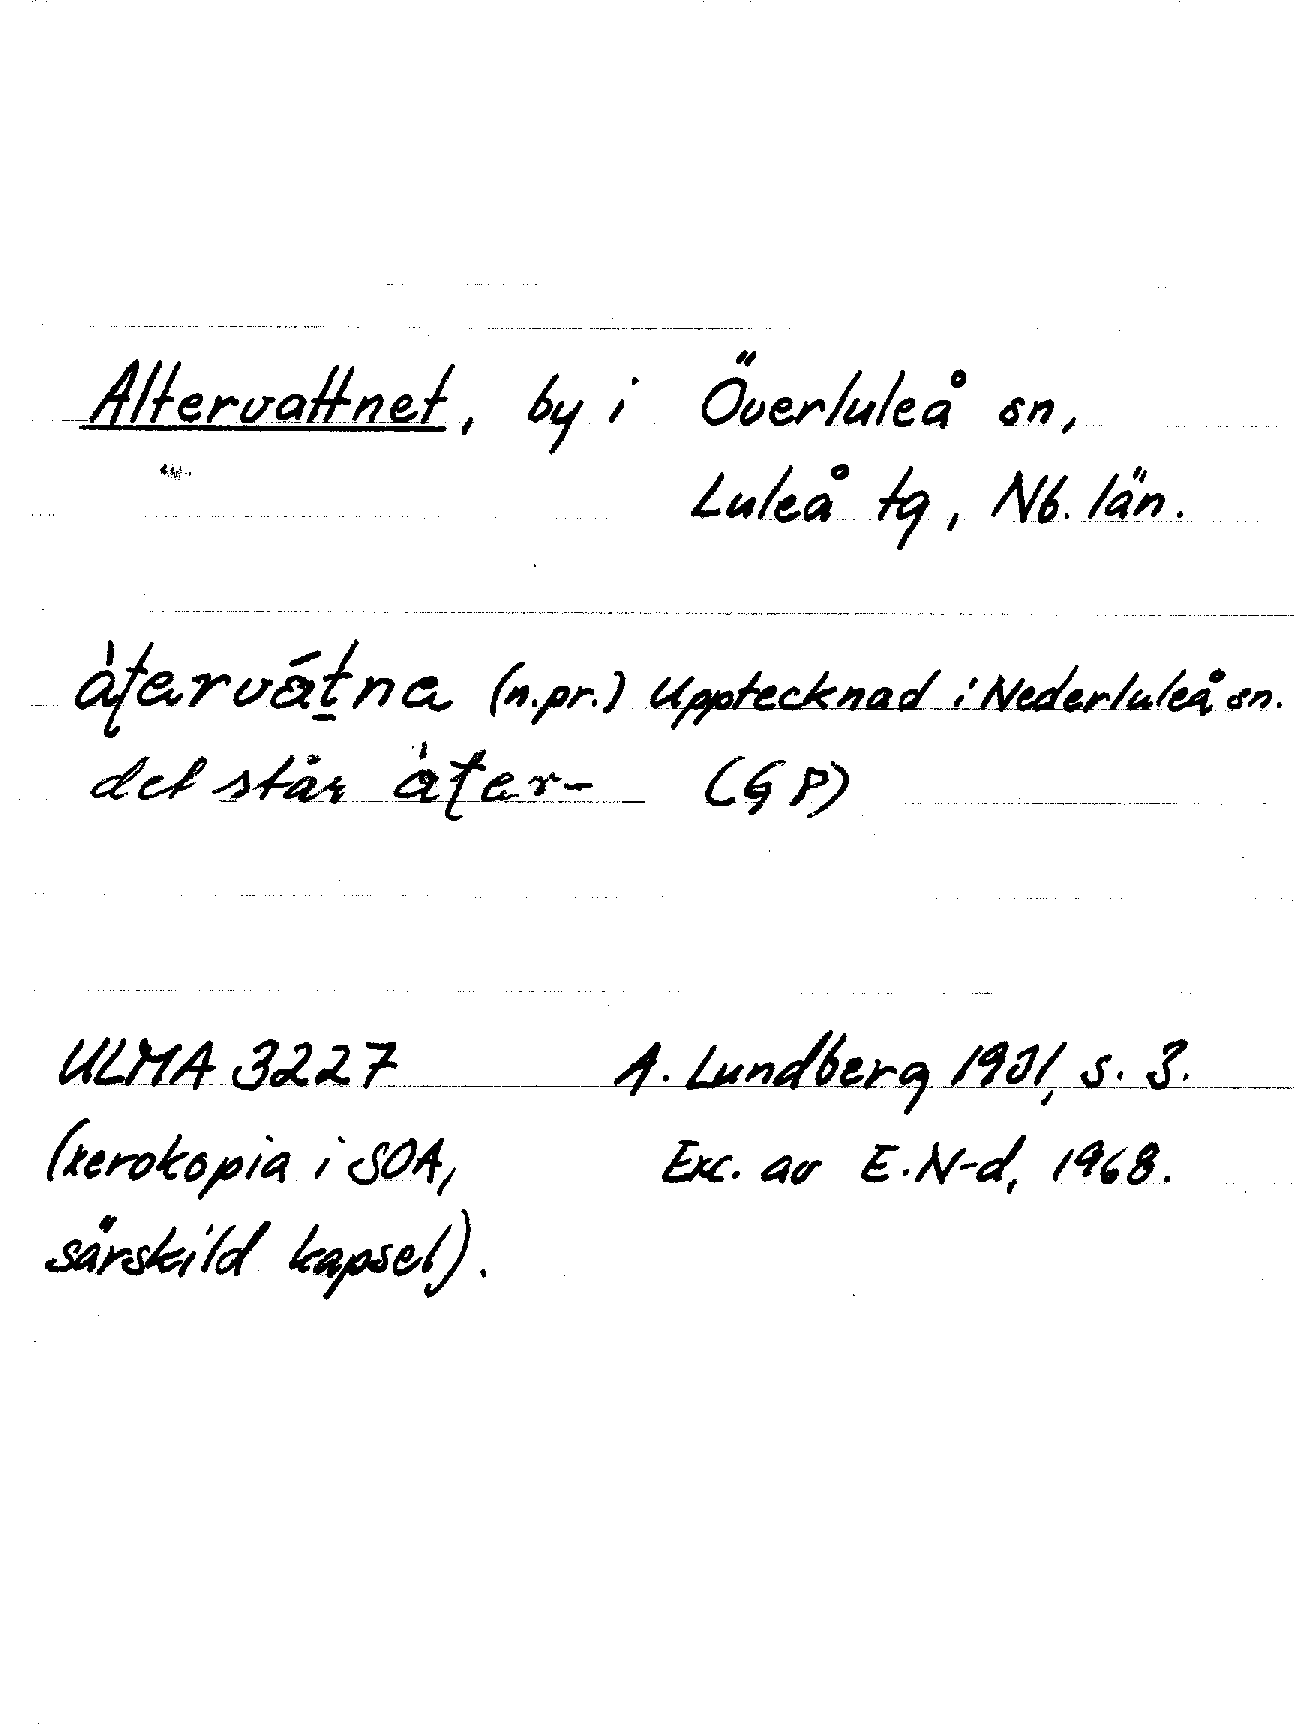 Altervattnet, by i Överluleå sn,
Luleå tg, Nb. län.
àtervátna (n.pr.) Upptecknad i Nederluleå sn.
det står àter- (GP)
ULMA 3227 A. Lundberg 1931, s. 3.
(xerokopia i SOA, Exc. av E.N-d, 1968.
särskild kapsel).